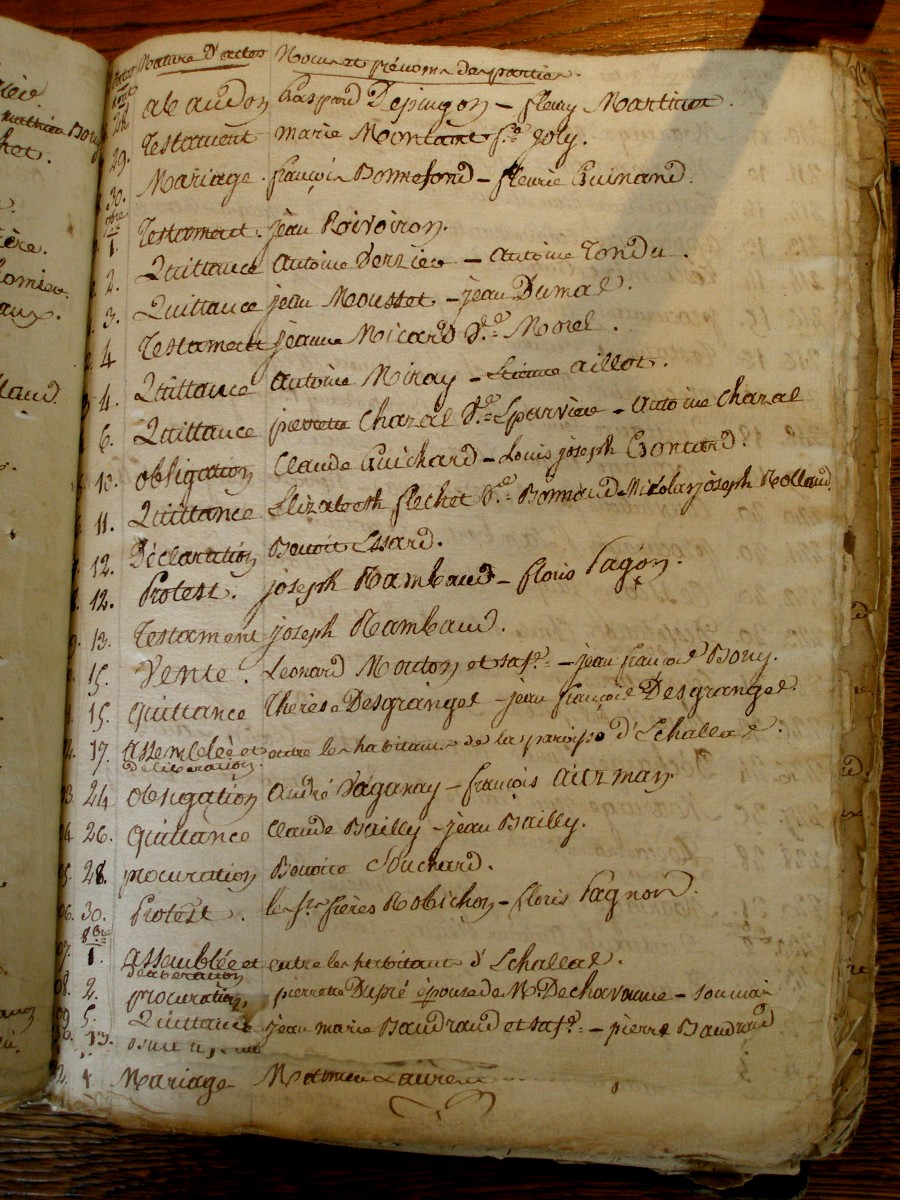 Nature D'actes Noms et prénoms des parties.
28 abandon Gaspard Depingon - fleury Martinot.
29. Testament marie Montant f.e Joly.
30. Mariage. françois Bonnefond - fleurie Guinand.
1. Testament. jean Rivoiron.
2. Quittance Antoine Verzier - Antoine Tondu.
3. Quittance jean Mousset - jean Dumas.
4 Testament jeanne Micard V.e Morel.
4. Quittance Antoine Miray - Etienne aillot.
6. Quittance pierrette Chazal V.e Eparvier - Antoine Chazal
10. obligation Claude Guichard - Louis joseph Gontard.
11. Quittance Elizabeth flechet V.e Bonnand - Nicolas joseph Rolland.
12. Déclaration Benoit Essard.
12. Protest. joseph Rambaud - floris Pagnon.
13. Testament joseph Rambaud.
15. Vente. Leonard Mouton et sa f.e - jean françois Bouy.
15. quittance Therese Desgranges - jean françois Desgranges.
17. assemblée et entre les habitans de la paroisse d'Echallas.
délibération.
24 obligation André Vaganay - françois
26. quittance Claude Bailly - jean Bailly.
28. procuration Benoite Souchard.
30. Protest. les s.rs frères Robichon - floris Pagnon.
8bre
1. assemblée et entre les habitants d'Echallas.
délibération
2. procuration, pierrette Dupré épouse de M. Dechavanne - son mari
5. Quittance jean marie Baudrand et sa f.e - pierre Baudrand
13.
Mariage Laurent